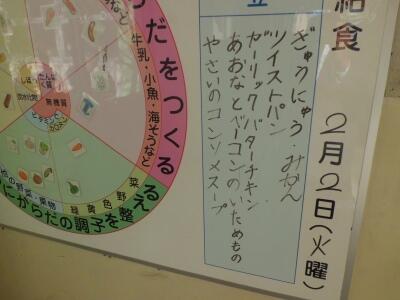 給食
2月2日(火曜)
立
ぎゅうにゅう・みかん
ツイストパン
ガーリックバターチキン
あおなとベーコンのいためもの
やさいのコンソメスープ
らだをつくる
牛乳・小魚・海そうなど
無機質
緑黄色野菜
他の野菜・果物
にからだの調子を整える